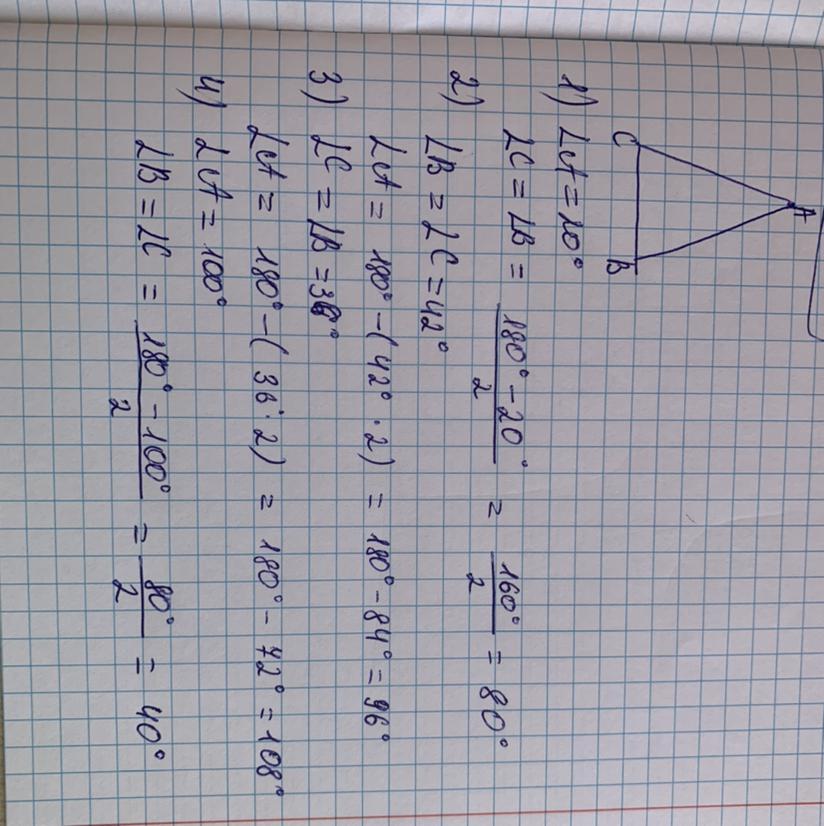 A
C B
1) ∠A = 20°
∠C = ∠B = (180° - 20°)/2 = 160°/2 = 80°
2) ∠B = ∠C = 42°
∠A = 180° - (42° · 2) = 180° - 84° = 96°
3) ∠C = ∠B = 36°
∠A = 180° - (36° · 2) = 180° - 72° = 108°
4) ∠A = 100°
∠B = ∠C = (180° - 100°)/2 = 80°/2 = 40°